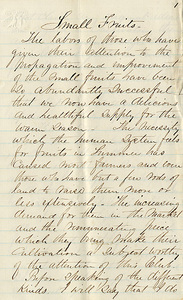 Small Fruits.
The labors of those who have
given their attention to the
propagation and improvement
of the Small fruits have been
so abundantly Successful
that we now have a delicious
and healthful Supply for the
warm Season. The necessity
which the human System feels
for fruits in Summer has
caused most farmers and even
those who have but a few rods of
land to raise them more or
less extensively. The increasing
demand for them in the Market
and the remunerative price
which they bring make their
cultivation a Subject worthy
of the attention of this Club.
Before Speaking of the different
kinds I will Say that I do